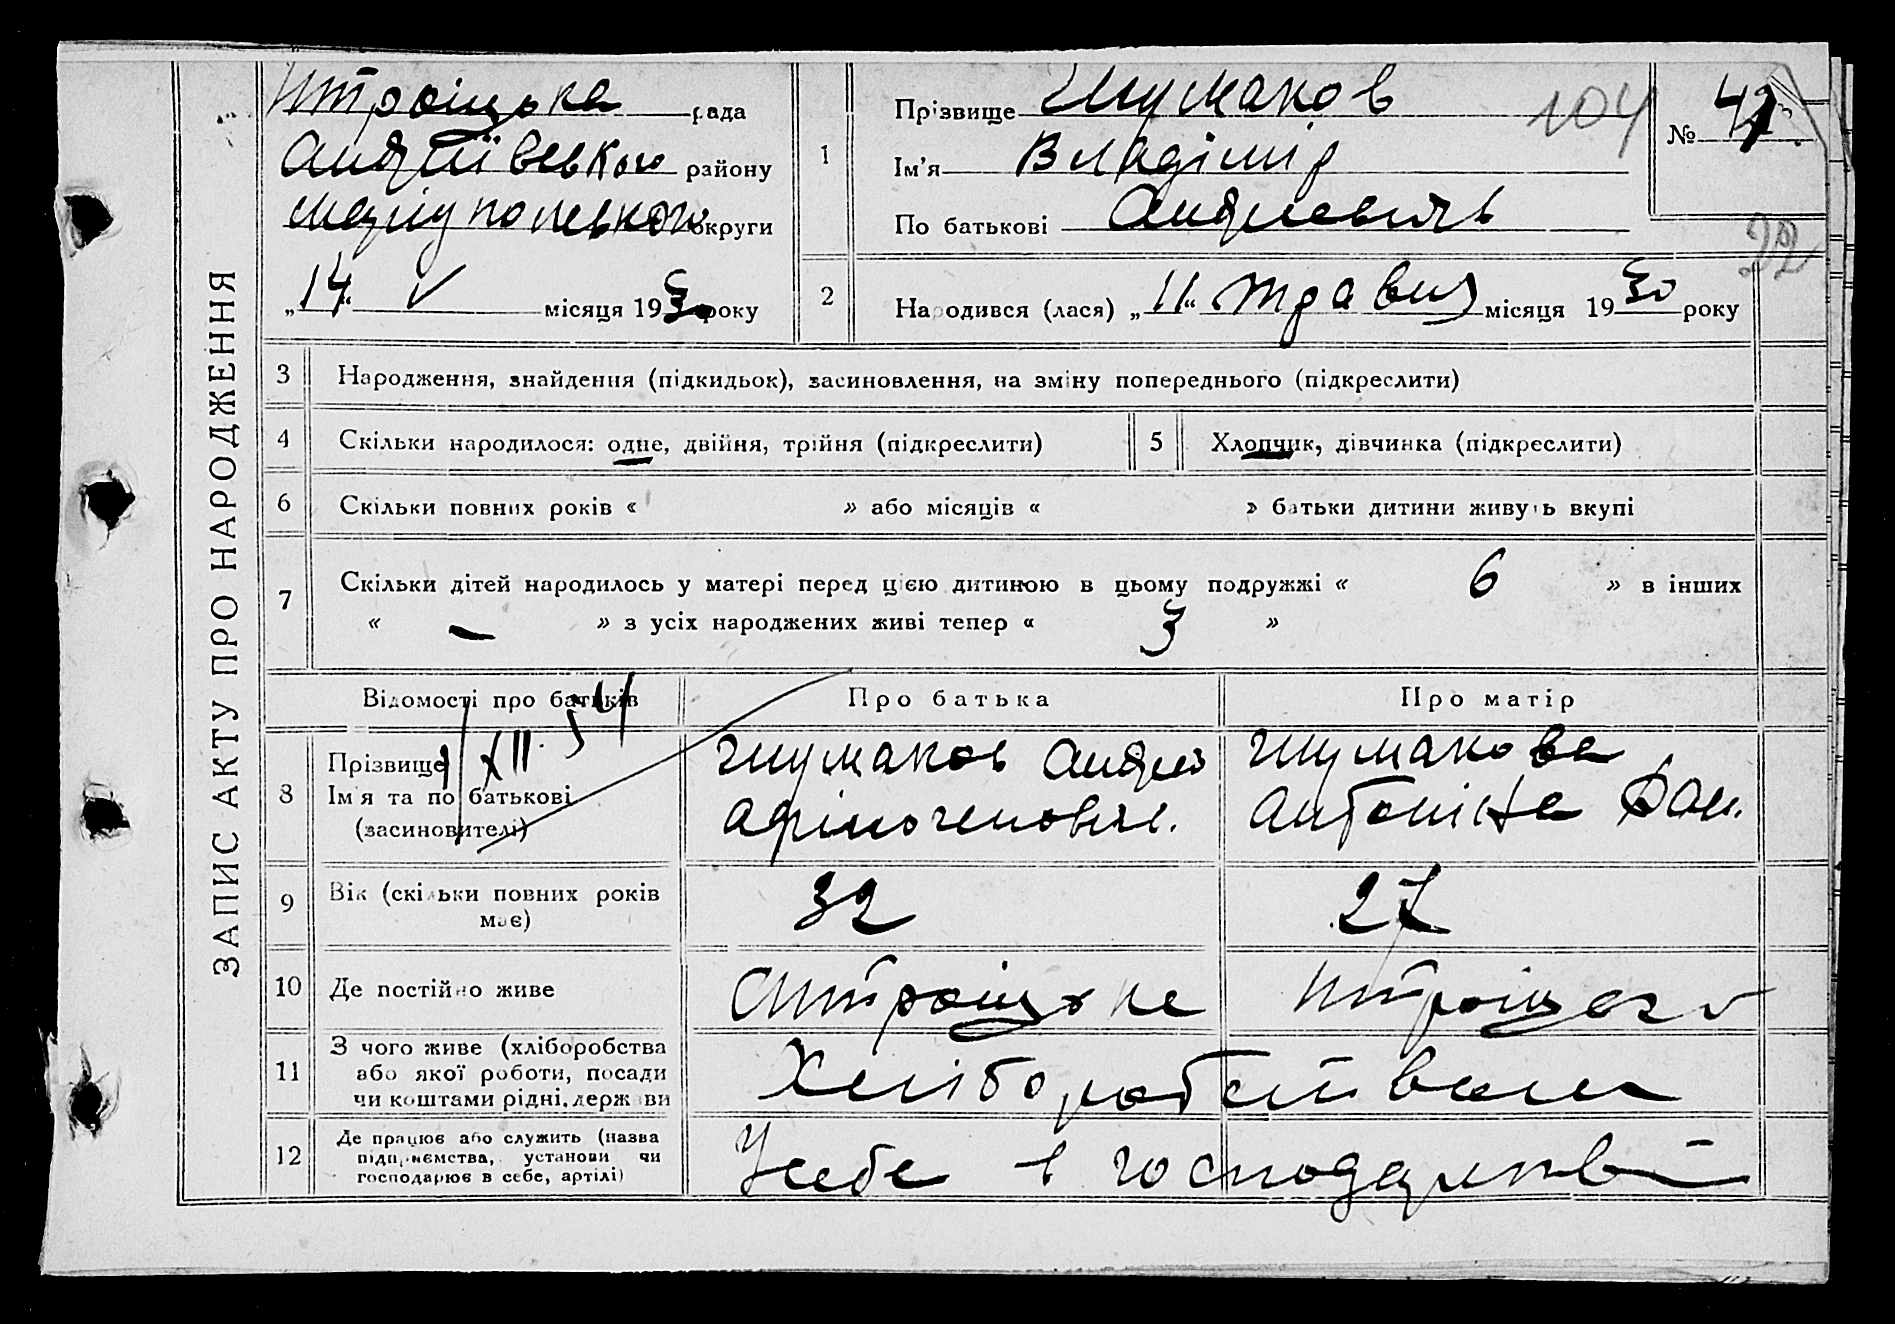 ЗАПИС АКТУ ПРО НАРОДЖЕННЯ
Нтроіцька рада
Андріївського району
Маріупольского округи
„14“ V місяця 1930 року
1
Прізвище Шумаков
104
№ 42
Ім'я Владімір
По батькові Андреевичь
22
2
Народився (лася) „11“ травня місяця 1930 року
3 Народження, знайдення (підкидьок), засиновлення, на зміну попереднього (підкреслити)
4 Скільки народилося: одне, двійня, трійня (підкреслити)
5 Хлопчик, дівчинка (підкреслити)
6 Скільки повних років « » або місяців « » батьки дитини живуть вкупі
7 Скільки дітей народилось у матері перед цією дитиною в цьому подружжі « 6 » в інших
« — » з усіх народжених живі тепер « 3 »
Відомості про батьків
Про батька
Про матір
8
Прізвище
Ім'я та по батькові
(засиновителі)
XII. 54
Шумаков Андрей
Афіногенович.
Шумакова
Антоніна Дан.
9
Вік (скільки повних років
має)
32
27
10 Де постійно живе
Нтроіцьке
11
З чого живе (хліборобства
або якої роботи, посади
чи коштами рідні, держави
Хліборобством
12
Де працює або служить (назва
підприємства, установи чи
господарює в себе, артілі)
У себе в господарстві